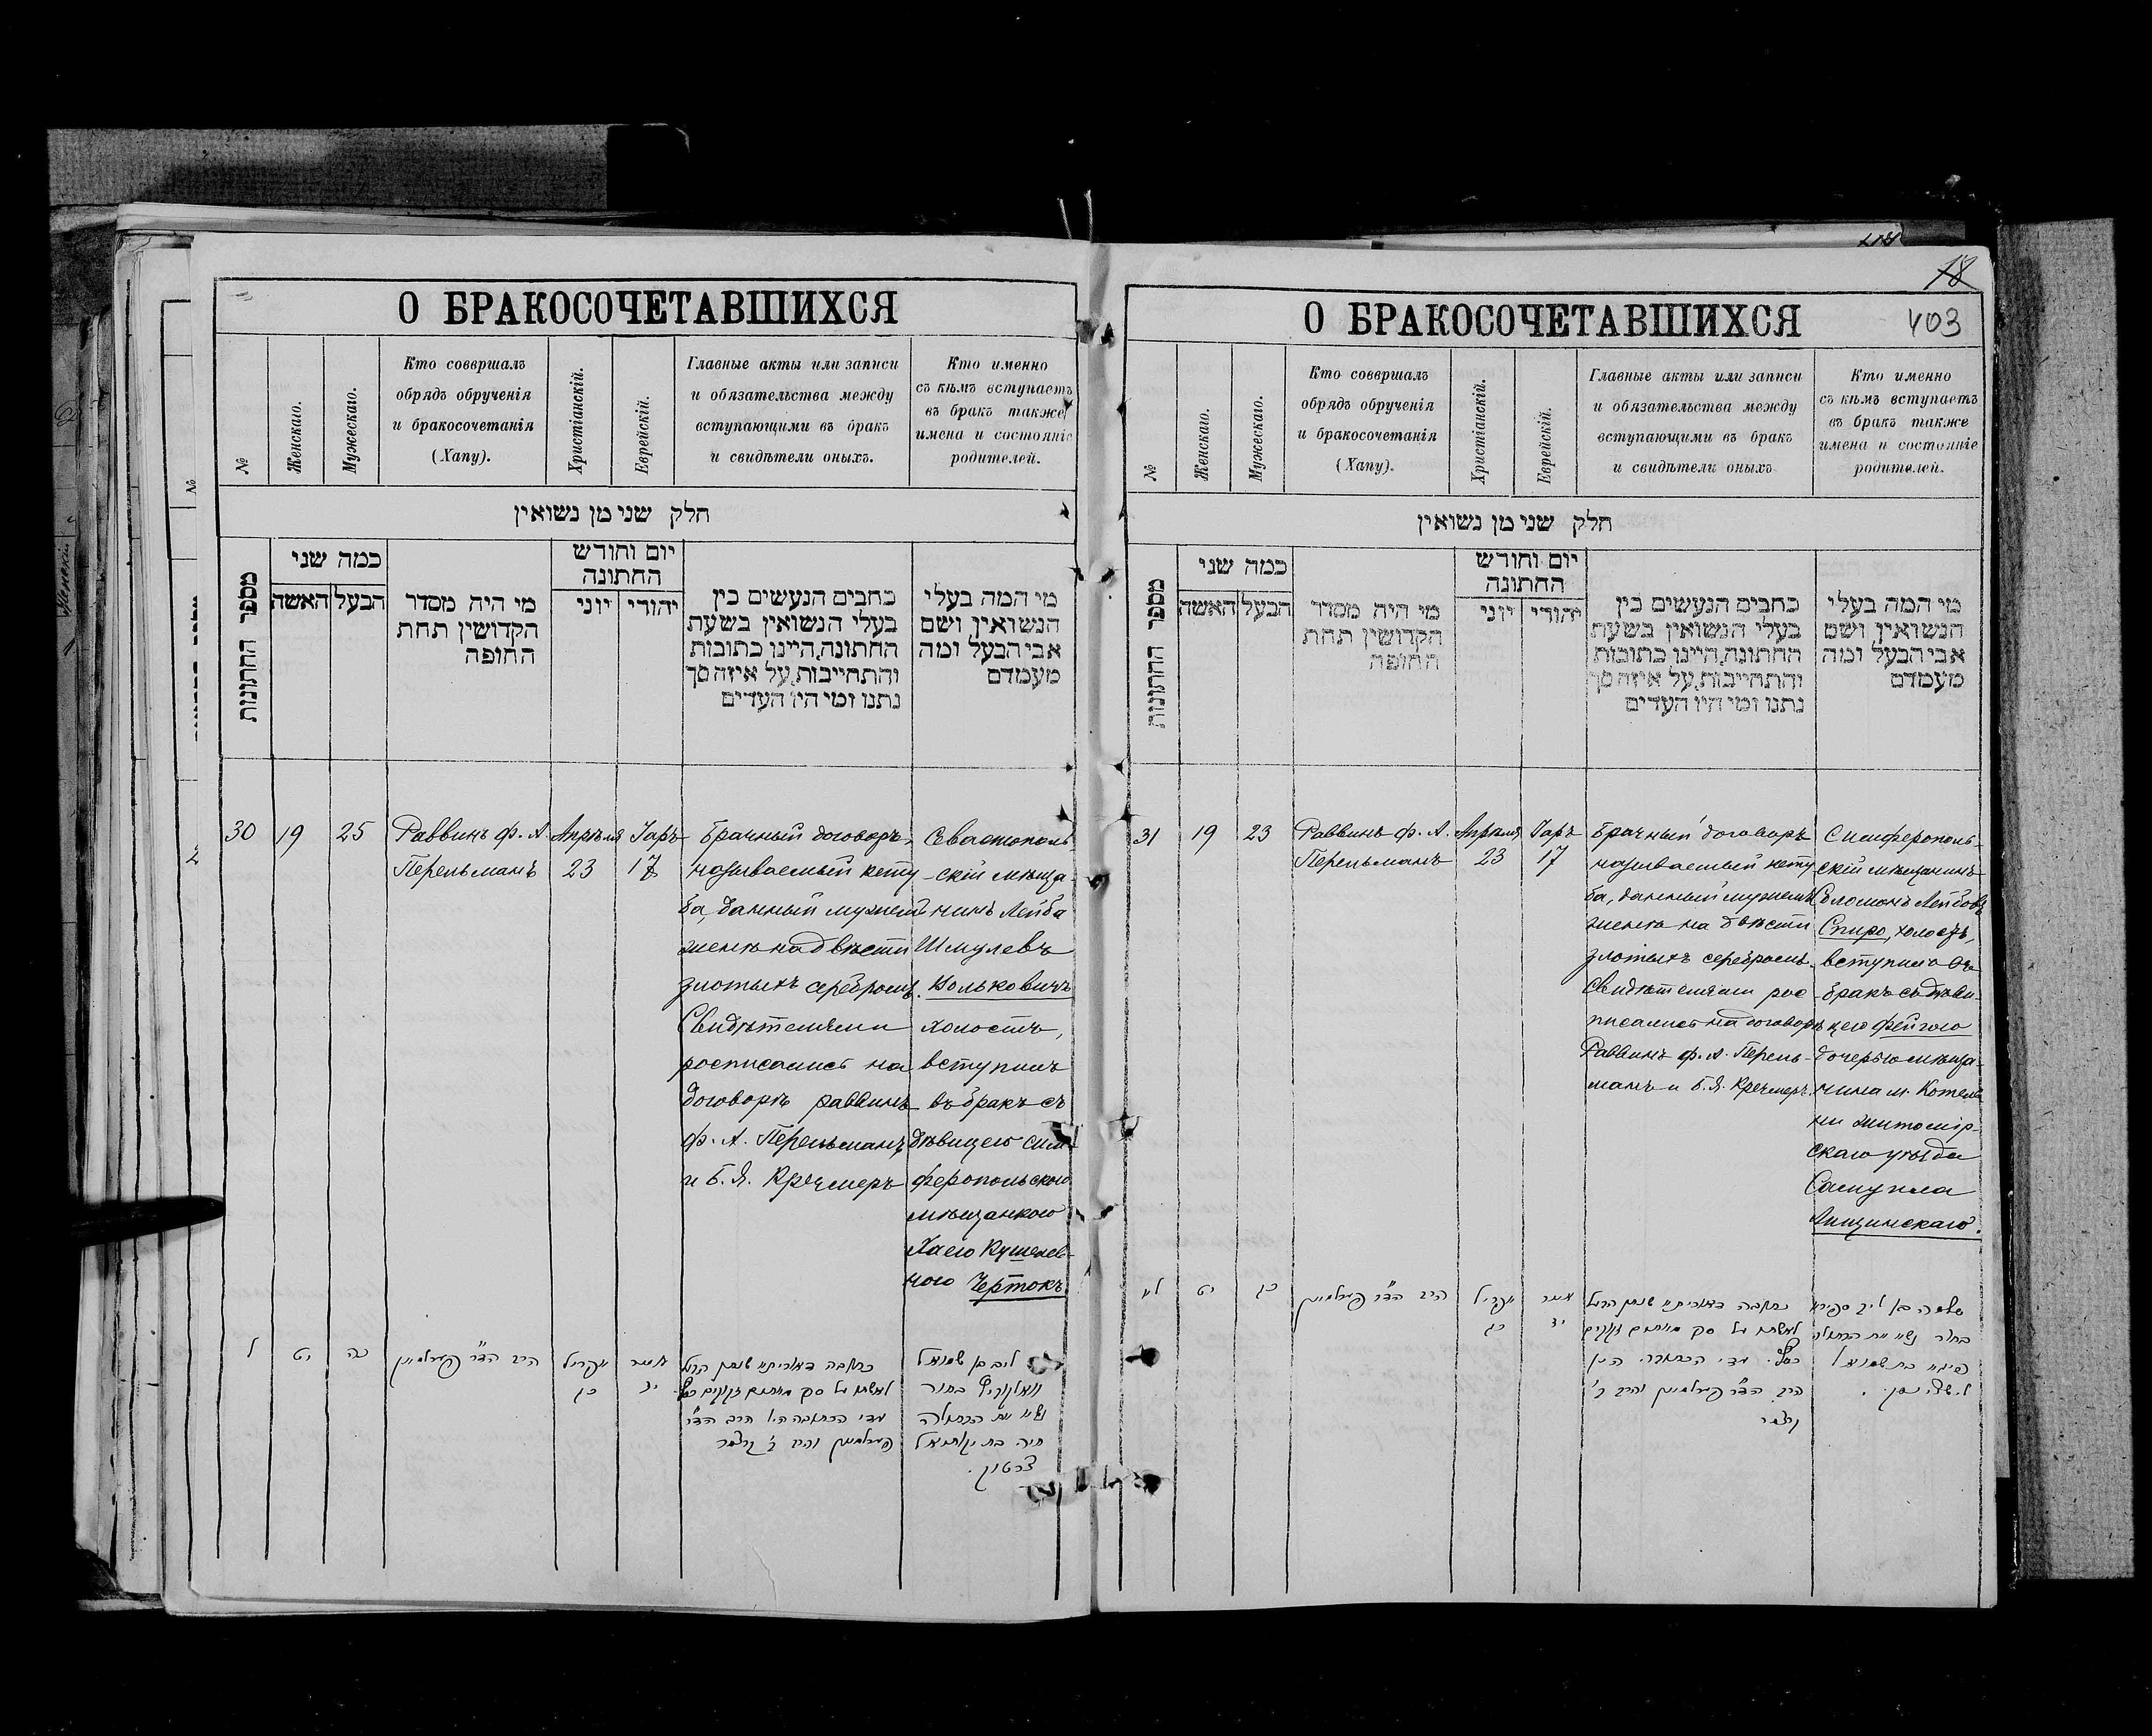 О БРАКОСОЧЕТАВШИХСЯ
№
Женскаго.
Мужескаго.
Кто совершалъ
обрядъ обрученія
и бракосочетанія
(Хапу).
Христіанскій.
Еврейскій.
Главные акты или записи
и обязательства между
вступающими въ бракъ
и свидѣтели оныхъ.
Кто именно
съ кѣмъ вступаетъ
въ бракъ также
имена и состояніе
родителей.
חלק שני מן נשואין
מספר החתונות
כמה שני
האשה
הבעל
מי היה מסדר
הקדושין תחת
החופה
יום וחודש
החתונה
יוני
יהודי
כתבים הנעשים בין
בעלי הנשואין בשעת
החתונה,היינו כתובות
והתחייבות,על איזה סך
נתנו ומי היו העדים
מי המה בעלי
הנשואין ושם
אבי הבעל ומה
מעמדם
30
19
25
Раввинъ Ф. А.
Перельманъ
Апрѣля
23
Іаръ
17
Брачный договоръ,
называемый кету
ба, данный мужемъ
женѣ на двѣсти
злотыхъ серебромъ.
Свидѣтелями
росписались на
договорѣ раввинъ
Ф. А. Перельманъ
и Б. Я. Кречмеръ
Севастополь-
скій мѣща-
нинъ Лейба
Шмулевъ
Вольковичъ
холостъ,
вступилъ
въ бракъ съ
дѣвицею сим-
феропольскою
мѣщанкою
Хаею Кушелев-
ною Чертокъ
ל
יט
כה
הרב הד״ר פערלמאן
אפריל
כג
אייר
כתובה דאורייתא שנתן הבעל
לאשתו על סך מאתים זקוקים כסף.
עדי הכתובה היו הרב הד״ר
פערלמאן והרב קרצמר
ליב בן שמואל
וואלקוביץ בחור
נשא את הבתולה
חיה בת יקותיאל
צרטוק.
18
403
О БРАКОСОЧЕТАВШИХСЯ
№
Женскаго.
Мужескаго.
Кто совершалъ
обрядъ обрученія
и бракосочетанія
(Хапу).
Христіанскій.
Еврейскій.
Главные акты или записи
и обязательства между
вступающими въ бракъ
и свидѣтели оныхъ
Кто именно
съ кѣмъ вступаетъ
въ бракъ также
имена и состояніе
родителей.
חלק שני מן נשואין
מספר החתונות
כמה שני
האשה
הבעל
מי היה מסדר
הקדושין תחת
החופה
יום וחודש
החתונה
יוני
יהודי
כתבים הנעשים בין
בעלי הנשואין בשעת
החתונה,היינו כתובות
והתחייבות,על איזה סך
נתנו ומי היו העדים
מי המה בעלי
הנשואין ושם
אבי הבעל ומה
מעמדם
31
19
23
Раввинъ Ф. А.
Перельманъ
Апрѣля
23
Іаръ
17
Брачный договоръ
называемый кету
ба, данный мужемъ
женѣ на двѣсти
злотыхъ серебромъ.
Свидѣтелями рос
писались на договорѣ
Раввинъ Ф. А. Перель-
манъ и Б. Я. Кречмеръ.
Симферополь-
скій мѣщанинъ
Соломонъ Лейбовъ
Спиро, холостъ,
вступилъ въ
бракъ съ дѣви-
цею Фейгою
дочерью мѣща-
нина м. Котель
ни житомір-
скаго уѣзда
Самуила
Лищинскаго.
לא
יט
כג
הרב הד״ר פערלמאן
אפריל
כג
אייר
יז
כתובה דאורייתא שנתן הבעל
לאשתו על סך מאתים זקוקים
כסף. עדי הכתובה היו
הרב הד״ר פערלמאן והרב
קרצמר
שלמה בן ליב ספירא
בחור נשא את הבתולה
פיגא בת שמואל